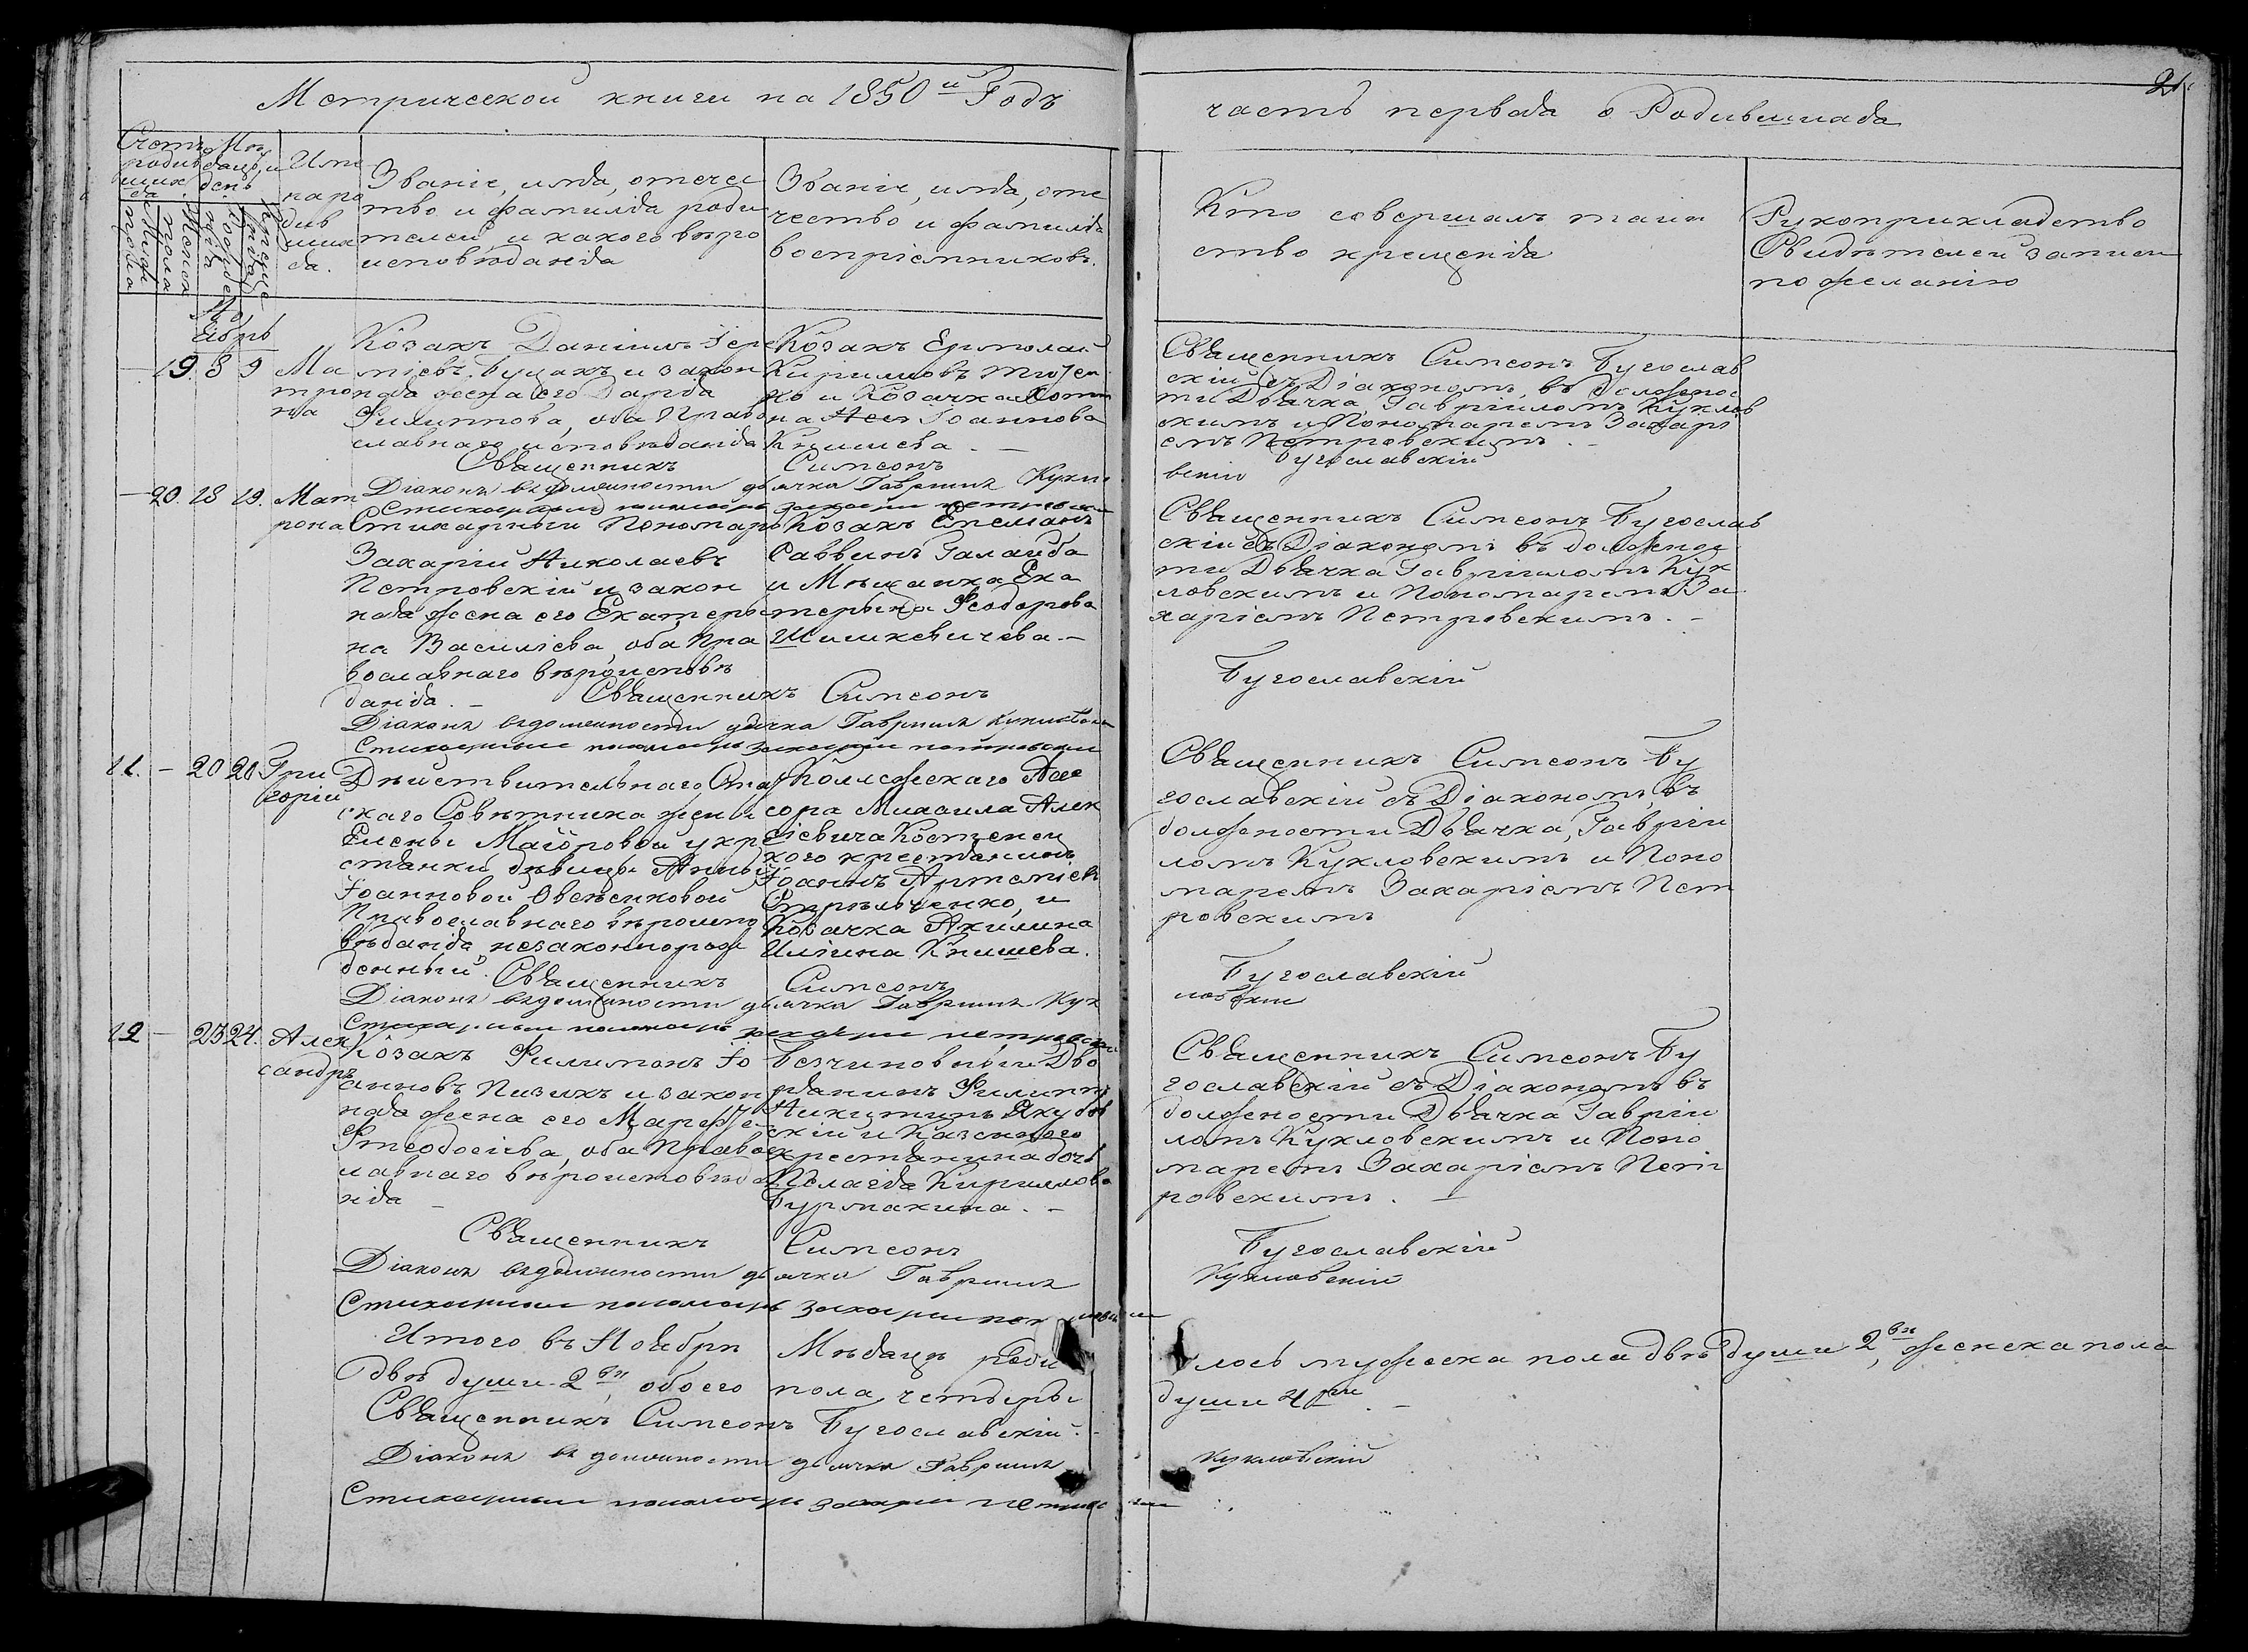 Метрической книги на 1850й Годъ
часть первая о Родившихся
21
Счетъ родив шихся
Мѣ сяцъ, и день
Муж пола
Женск пола
рожде нія
креще нія
Име
на ро
див
ших
ся.
Званіе, имя, отече
ство и фамилія роди
телей, и какого вѣро
исповѣданія
Званіе, имя, оте
чество и фамилія
воспріемниковъ.
Кто совершалъ таин
ство крещенія
Рукоприкладство
Свидѣтелей записи
по желанію
Но
ябрь
— 19. 8 9
Ма
тро
на
Козакъ Даніилъ Тере
нтіевъ Буцакъ и закон
ная жена его Дарія
Филиппова, оба Право
славнаго исповѣданія
Козакъ Ермолай
Кирилловъ
и Козачка
на Іоаннова
Книшева —
Священникъ Симеонъ Бугослав
скій съ Діакономъ, въ должнос
ти Дьячка, Гавріиломъ Куклов
скимъ и Пономаремъ Захарі
емъ Петровскимъ. —
Священникъ Симеонъ Бугославскій
Діаконъ въ должности дьячка Гавриилъ Кукло
вскій
Стихарный пономарь Захарій Петровскій
— 20. 18 19.
Мат
рона
Стихарный Пономарь
Захарій Николаевъ
Петровскій и закон
ная жена его Екатери
на Василіева, оба Пра
вославнаго вѣроисповѣ
данія. —
Козакъ Емеліанъ
Саввинъ Галайда
и Мѣщанка Ека
терина Феодорова
Шишкевичева. —
Священникъ Симеонъ Бугослав
скій съ Діакономъ въ должнос
ти Дьячка Гавріиломъ Кук
ловскимъ и Пономаремъ За
харіемъ Петровскимъ. —
Священникъ Симеонъ Бугославскій
Діаконъ въ должности дьячка Гавриилъ Кукловскій
Стихарный пономарь Захарій Петровскій
11. — 20 20
Гри
горій
Дѣйствительнаго Стат
скаго Совѣтника жены
Елены Маіоровой кре
стянки дѣвицы Анны
Іоанновой Овсѣенковой
Православнаго вѣроиспо
вѣданія, незаконнорож
денный.
Коллежскаго Асе
сора Михаила Алек
сіевича Костенец
кого крестянинъ
Іоаннъ Артеміев
Стрѣльченко, и
Козачка Акилина
Иліина Книшева.
Священникъ Симеонъ Бу
гославскій съ Діакономъ, въ
должности Дьячка, Гавріи
ломъ Кукловскимъ и Поно
маремъ Захаріемъ Пет
ровскимъ
Священникъ Симеонъ Бугославскій
Діаконъ въ должности дьячка Гавриилъ Кук
ловскій
Стихарный пономарь Захарій Петровскій
12 — 23 24.
Алек
сандръ
Козакъ Филимонъ Іо
анновъ Пизикъ и закон
ная жена его Марфа
Феодосіева, оба Правос
лавнаго вѣроисповѣда
нія —
Безчиновный Дво
рянинъ Филиппъ
Никитинъ Якубов
скій и Казенного
крестянина дочь
Пелагія Кириллова
Бурмакина. —
Священникъ Симеонъ Бу
гославскій съ Діакономъ въ
должности Дьячка Гавріи
ломъ Кукловскимъ и Поно
маремъ Захаріемъ Пет
ровскимъ. —
Священникъ Симеонъ Бугославскій
Діаконъ въ должности дьячка Гавриилъ Кукловскій
Стихарный пономарь Захарій
Итого въ Ноябрѣ Мѣсяцѣ роди лось мужеска пола двѣ души 2ѣ, женска пола
двѣ души 2ѣ, обоего пола четыре души 4ре. —
Священникъ Симеонъ Бугославскій. —
Діаконъ въ должности дьячка Гавриилъ Кукловскій
Стихарный пономарь Захарій